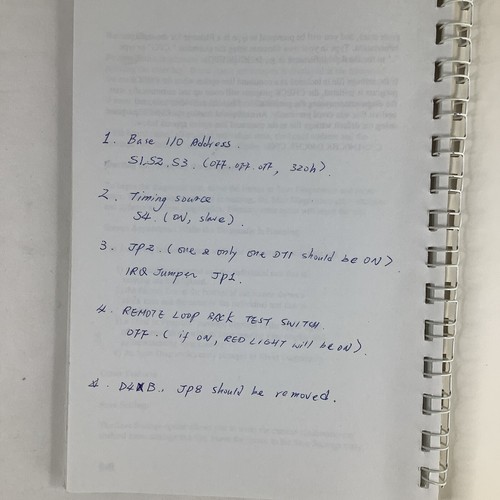 1. Base I/O Address.
S1,S2,S3. (OFF.OFF.OFF, 320h).
2. Timing source
S4. (ON, slave).
3. JP2. (one & only one DTI should be ON)
IRQ Jumper JP1.
4. REMOTE LOOP BACK TEST SWITCH.
OFF. (if ON, RED LIGHT will be ON).
4. D4XB., JP8 should be removed.